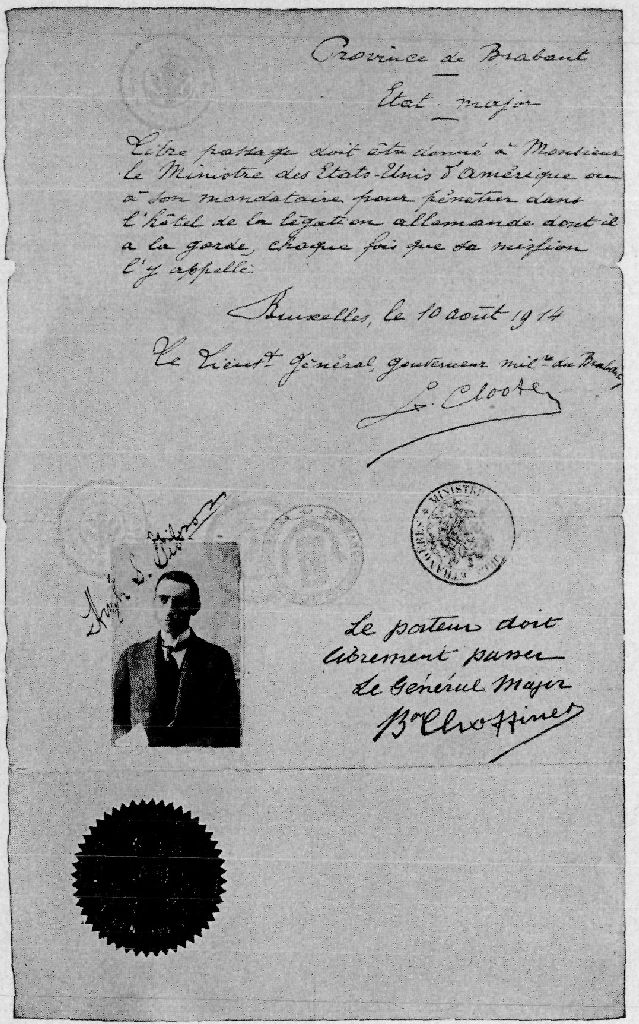 Province de Brabant
Etat-major
Libre passage doit être donné à Monsieur
le Ministre des Etats-Unis d'Amérique ou
à son mandataire pour pénétrer dans
l'hôtel de la légation allemande dont il
a la garde, chaque fois que sa mission
l'y appelle.
Bruxelles, le 10 août 1914
Le Lieut Général, gouverneur milre du Brabant,
G. Clooten
Hugh S. Gibson
MINISTÈRE DES ÉTRANGÈRES
Le porteur doit
librement passer
Le Général Major